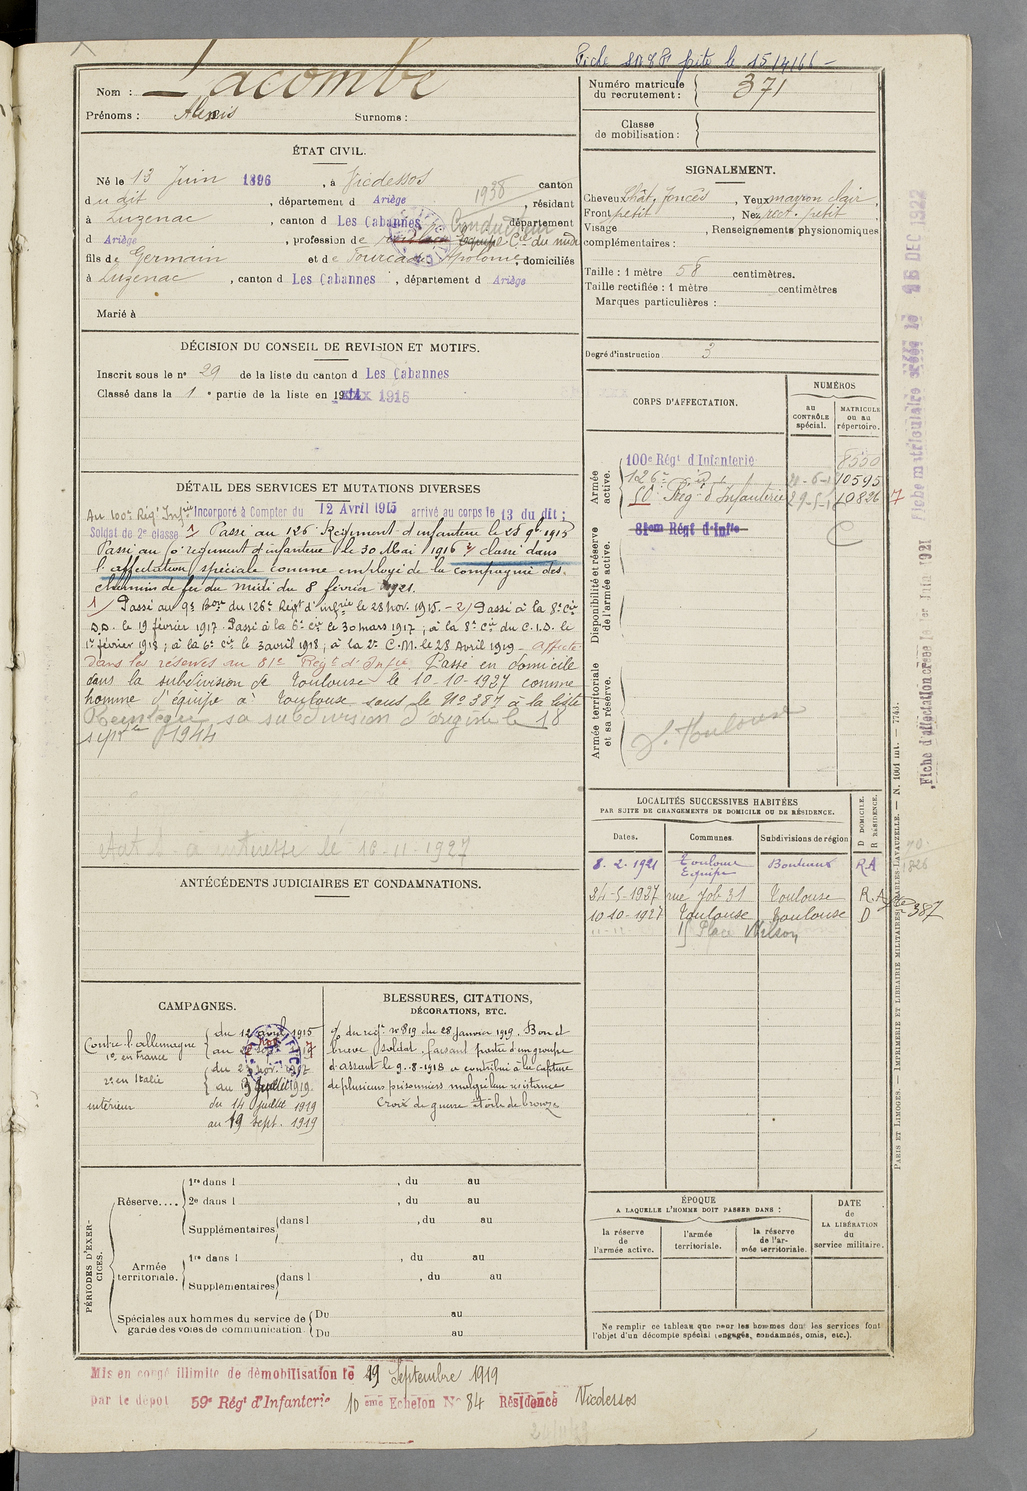 Fiche
le 15/4/66 -
Nom : Lacombe
Prénoms : Alexis Surnoms :
Numéro matricule du recrutement : 371
Classe de mobilisation :
ÉTAT CIVIL.
Né le 13 Juin 1896, à Vicdessos canton
dudit, département d Ariège, résidant
1938
à Luzenac, canton d Les Cabannes département
Conducteur
d Ariège, profession de Cie du midi
fils de Germain et de Fourcade Apolonie, domiciliés
à Luzenac, canton d Les Cabannes, département d Ariège
Marié à
SIGNALEMENT.
Cheveux Chât. foncés, Yeux marron clair,
Front petit, Nez rect. petit
Visage , Renseignements physionomiques
complémentaires :
Taille : 1 mètre 58 centimètres.
Taille rectifiée : 1 mètre centimètres
Marques particulières :
Degré d'instruction 3
DÉCISION DU CONSEIL DE REVISION ET MOTIFS.
Inscrit sous le n° 29 de la liste du canton d Les Cabannes
Classé dans la 1e partie de la liste en 1915
DÉTAIL DES SERVICES ET MUTATIONS DIVERSES
Au 100e Rég' Inf'ie Incorporé à Compter du 12 Avril 1915 arrivé au corps le 13 du dit ;
Soldat de 2e classe 1/ Passé au 126e Régiment d'infanterie le 28 9bre 1915
Passé au 50e régiment d'infanterie le 30 Mai 1916 2/ classé dans
l'affectation spéciale comme employé de la compagnie des
chemins de fer du midi du 8 février 1921.
1/ Passé au 9e Bon du 126e Régt d'infrie le 28 nov. 1915. - 2/ Passé à la 8e Cie
D.D. le 19 février 1917 Passé à la 6e Cie le 30 mars 1917 ; à la 8e Cie du C.I.D. le
1er février 1918 ; à la 6e Cie le 3 avril 1918 ; à la 2e C.M. le 28 Avril 1919 - Affecté
dans les réserves au 81e Régt d'Infie Passé en domicile
dans la subdivision de Toulouse le 10-10-1927 comme
homme d'équipe à Toulouse sous le N° 387 à la liste
Réintègre sa subdivision d'origine le 18
septbre 1944
le 16-11-1927
CORPS D'AFFECTATION.
NUMÉROS
au CONTRÔLE spécial.
MATRICULE ou au répertoire.
Armée active.
100e Régt d'Infanterie 8550
126e d° 10595
50e Régt d'Infanterie 10826
Disponibilité et réserve de l'armée active.
81eme Regt d'Infie
C
Armée territoriale et sa réserve.
S. Toulouse
LOCALITÉS SUCCESSIVES HABITÉES
PAR SUITE DE CHANGEMENTS DE DOMICILE OU DE RÉSIDENCE.
D DOMICILE. R RÉSIDENCE.
Dates. Communes. Subdivisions de région
8. 2. 1921 Toulouse Equipe Bordeaux RA
24-5-1927 rue Job 31 Toulouse R.A
10 10-1927 Toulouse Toulouse D
15 Place Wilson
387
ANTÉCÉDENTS JUDICIAIRES ET CONDAMNATIONS.
CAMPAGNES.
Contre l'allemagne du 12 avril 1915
1° en France au
du 2 nov. 1917
2° en Italie au 13 Juillet 1919
intérieur du 14 Juillet 1919
au 19 Sept. 1919
BLESSURES, CITATIONS,
DÉCORATIONS, ETC.
O/ du régt n° 819 du 28 Janvier 1919. Bon et
brave soldat, faisant partie d'un groupe
d'assaut le 9-8-1918 a contribué à la capture
de plusieurs prisonniers malgré leur résistance
Croix de guerre étoile de bronze
PÉRIODES D'EXERCICES.
Réserve....
1re dans l , du au
2e dans l , du au
Supplémentaires dans l , du au
Armée territoriale.
1re dans l , du au
Supplémentaires dans l , du au
Spéciales aux hommes du service de garde des voies de communication.
Du au
Du au
ÉPOQUE
A LAQUELLE L'HOMME DOIT PASSER DANS :
la réserve de l'armée active.
l'armée territoriale.
la réserve de l'armée territoriale.
DATE de LA LIBÉRATION du service militaire.
Ne remplir ce tableau que pour les hommes dont les services font
l'objet d'un décompte spécial (engagés, condamnés, omis, etc.).
Mis en congé illimité de démobilisation le 19 Septembre 1919
par le dépot 59e Régt d'Infanterie 10 eme Echelon N° 84 Résidence Vicdessos
PARIS ET LIMOGES. — IMPRIMERIE ET LIBRAIRIE MILITAIRES CHARLES-LAVAUZELLE. — N. 1001 int. — 7743.
Fiche matriculaire créée le 26 DEC 1922
Fiche d'affectation créée le 1er Juin 1921